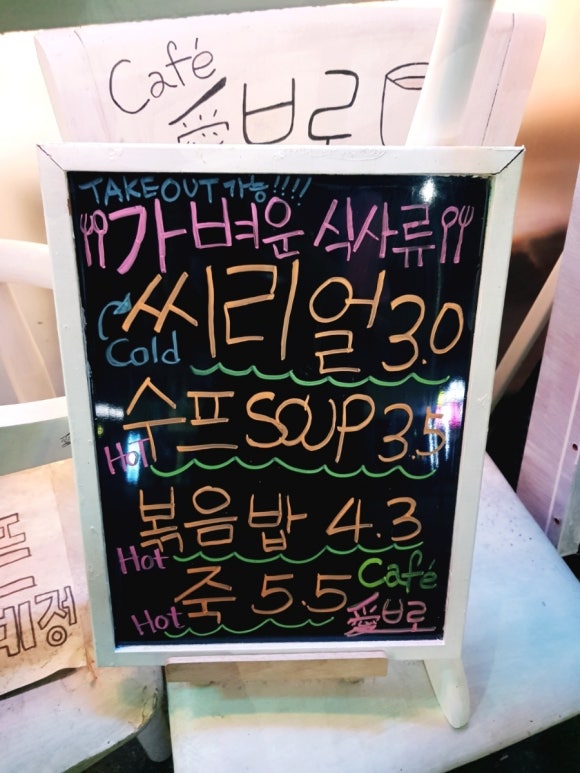 Café
愛브로
TAKEOUT 가능!!!!
가벼운 식사류
씨리얼 3.0
Cold
수프 SOUP 3.5
Hot
볶음밥 4.3
Hot
죽 5.5
Hot
Café
愛브로
예정